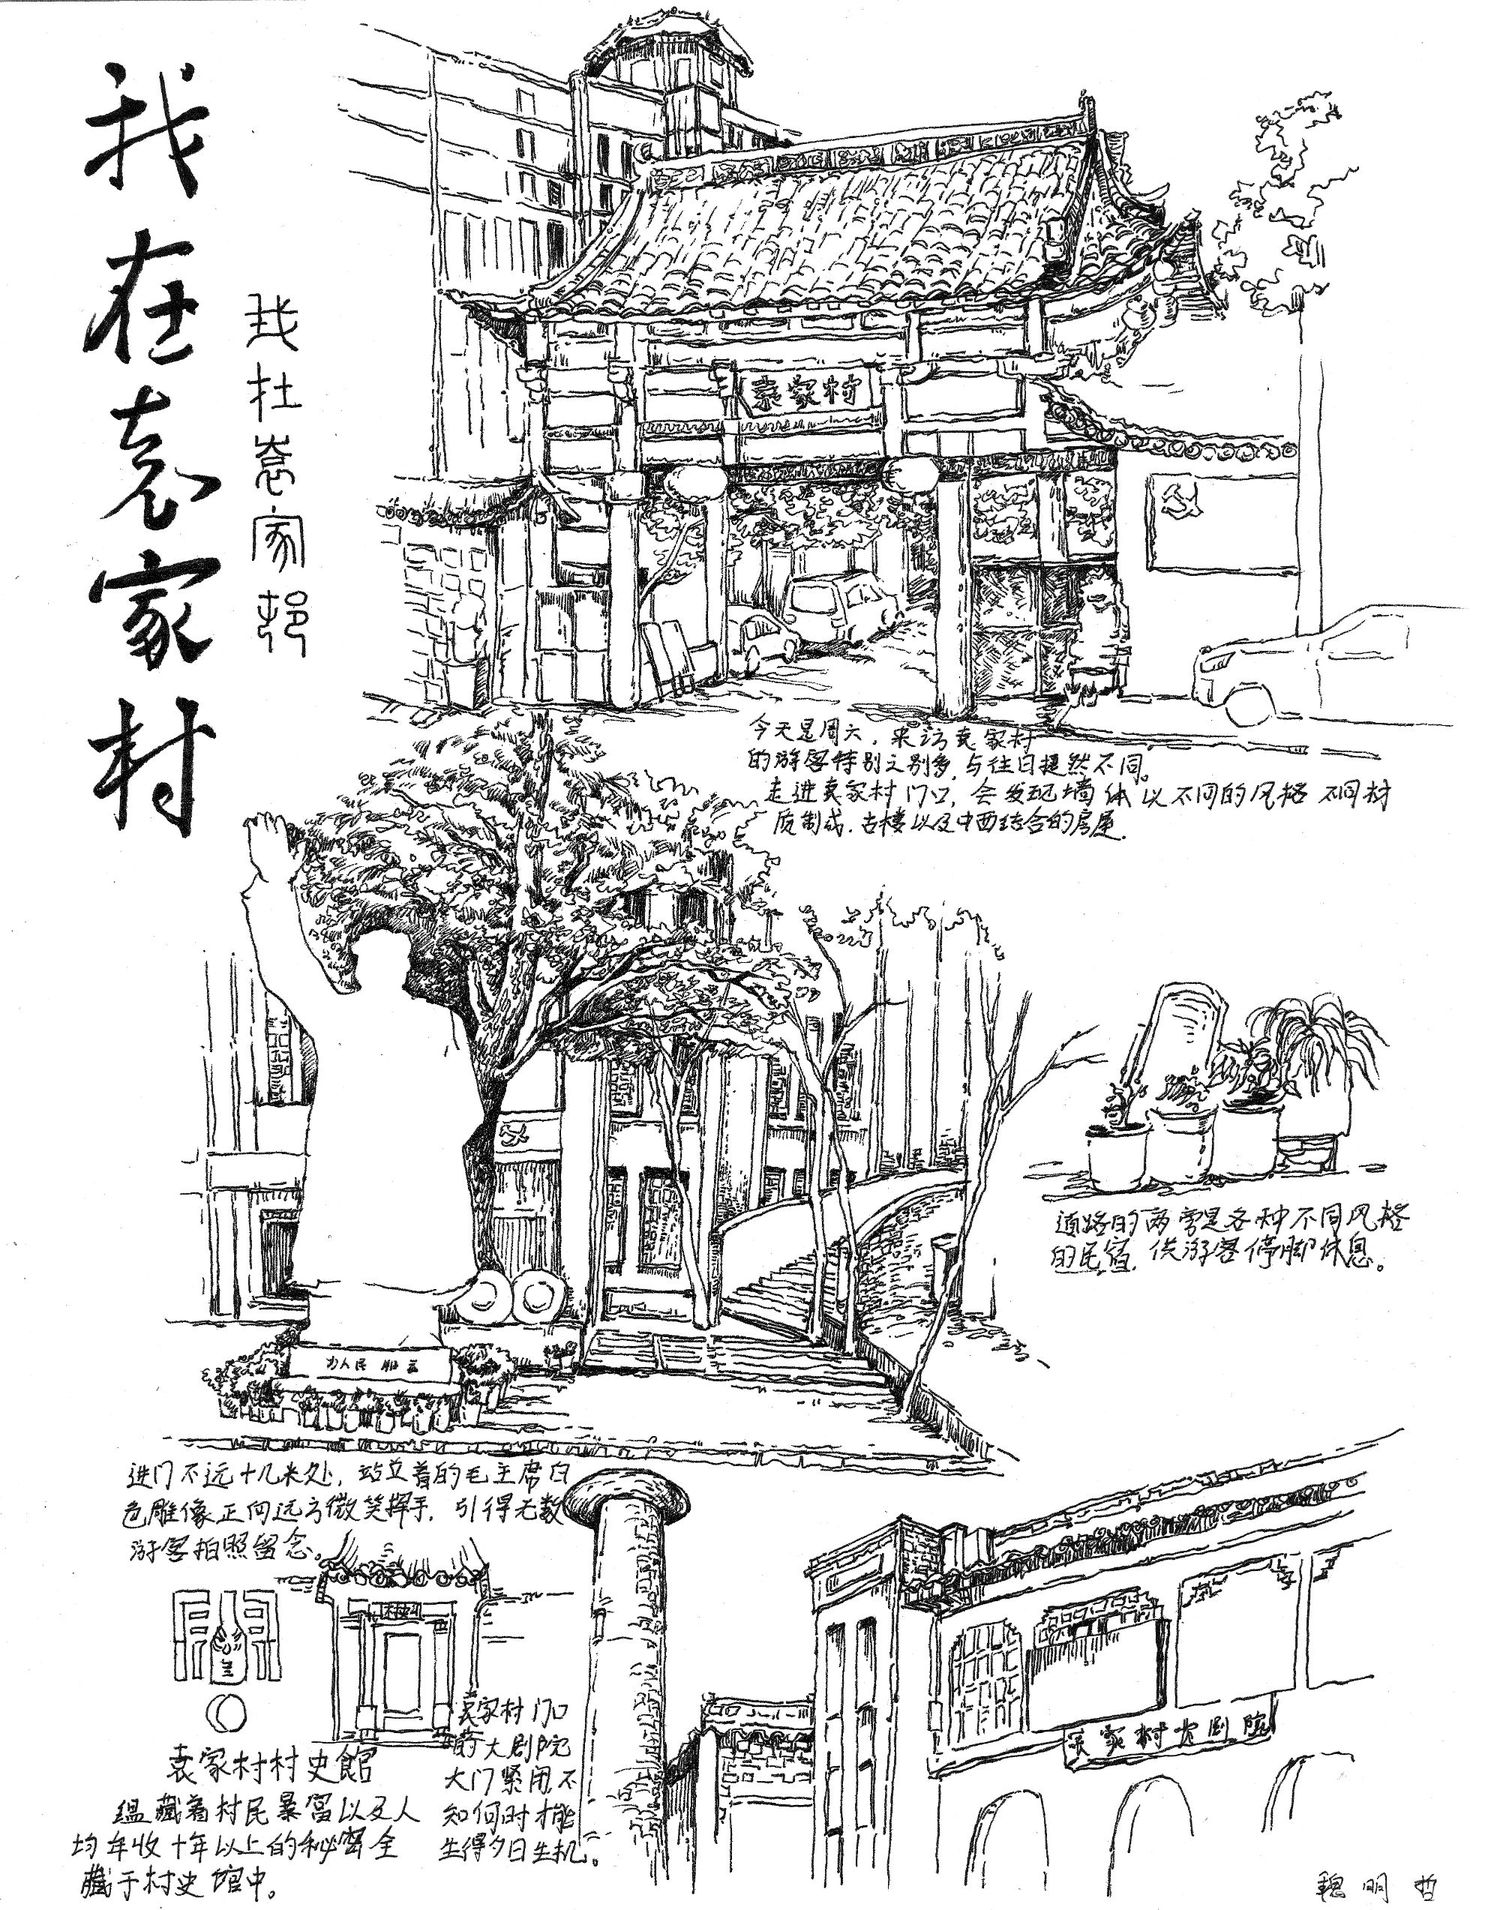 我在袁家村
我在袁家邨
袁家村
今天是周六，来访袁家村
的游客特别之别多，与往日提然不同。
走进袁家村门口，会发现墙体以不同的风格 不同材
质制成，古楼以及中西结合的房屋。
为人民服务
道路的两旁是各种不同风格
的民宿，供游客停脚休息。
进门不远十几米处，站立着的毛主席白
色雕像正向远方微笑挥手，引得无数
游客拍照留念。
袁家村村史館
蕴藏着村民暴富以及人
均年收十年以上的秘密全
藏于村史馆中。
袁家村门口
的大剧院
大门紧闭，不
知何时才能
生得夕日生机。
袁家村大剧院
魏明哲